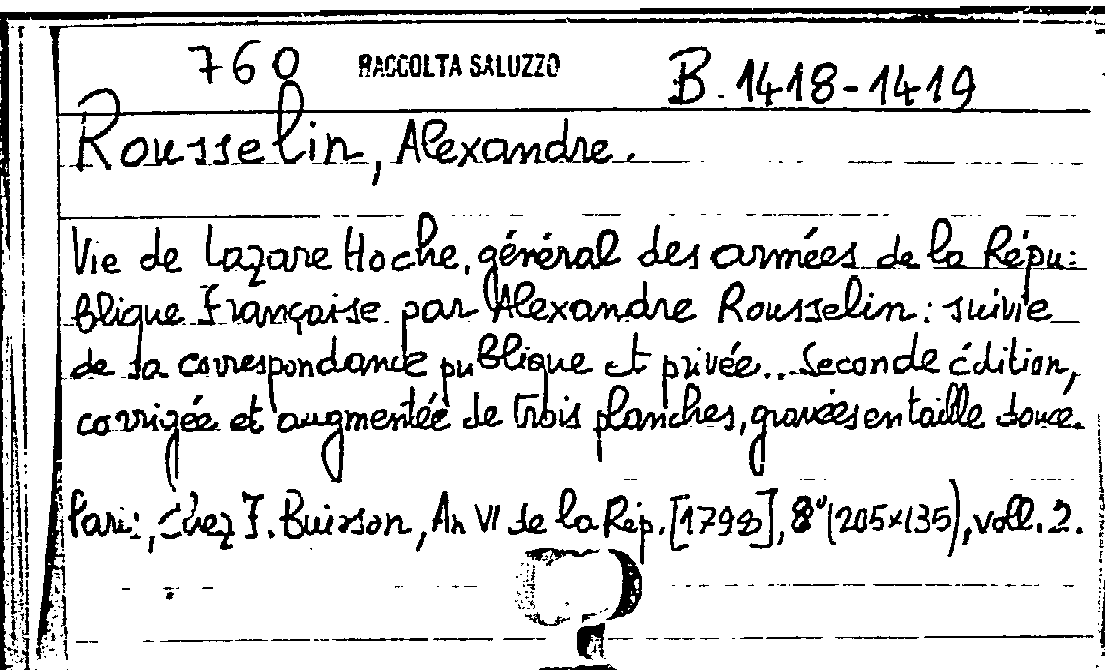 760 RACCOLTA SALUZZO B. 1418-1419
Rousselin, Alexandre.
Vie de Lazare Hoche, général des armées de la Répu:
blique Française par Alexandre Rousselin: suivie
de sa correspondance publique et privée... Seconde édition,
corrigée et augmentée de trois planches, gravées en taille douce.
Paris, chez F. Buisson, An VI de la Rép. [1798], 8° (205×135), voll. 2.